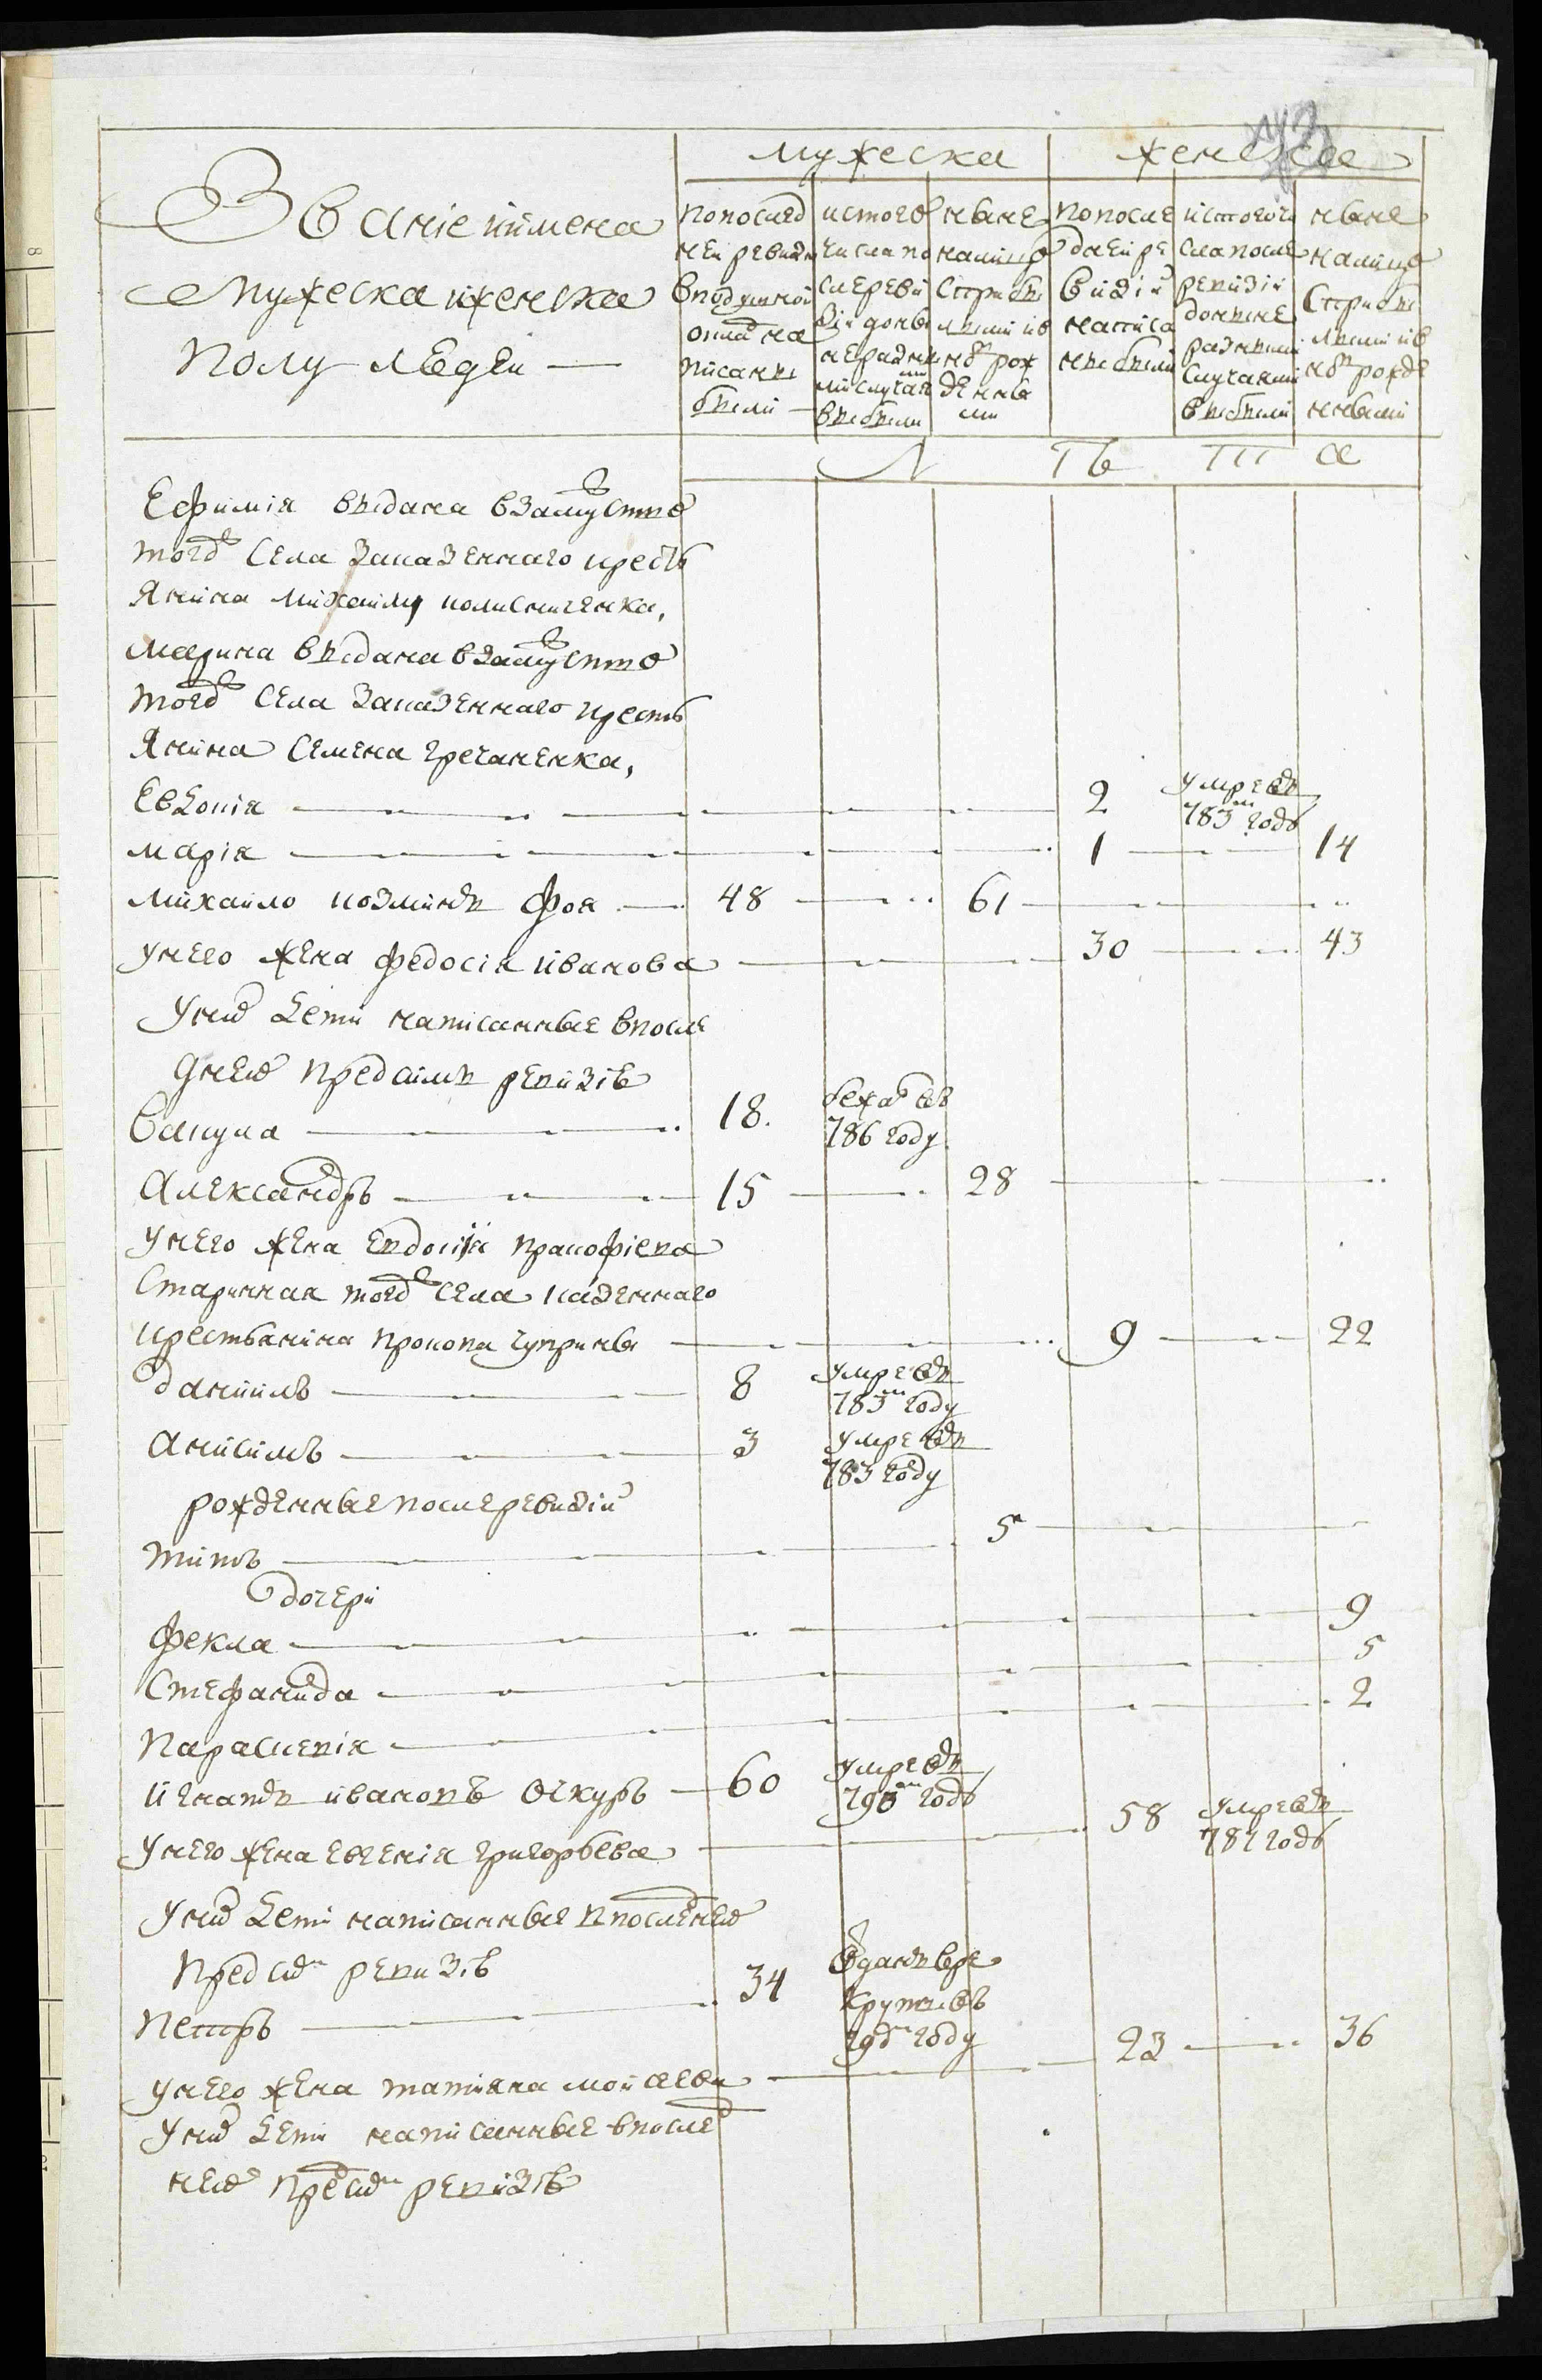 Мужеска женска
Званіе иимена
Мужеска иженска
полу людей —
попослед
ней ревизи
вподушной
окладъ на
писаны
были —
истого
числа по
слереви
зіи доны
не разны
ми случая
выбыли
ныне
налицо
стрибы
лыми ив
нб рож
денны
ми
попосле
дней ре
визіи
написа
ны были
истогочи
сла после
ревизіи
доныне
разными
случаями
выбыли
ныне
налицо
стрибы
лыми ив
нб рожде
нными
Лѣта
Ефимія выдана взамуство
тогожъ села казеннаго кресть
янина Михайлу колисниченка,
Марина выдана взамуство
тогожъ села казеннаго кресть
янина Семена гречаненка,
Евдокія 2 умре въ
783м годѣ
Марія 1 14
Михайло козминъ Фоя 48 61
унего жена федосія иванова 30 43
уних дети написанные впосле
дней пред симъ ревизіи
Вакула 18. бежалъ въ
786 году
Александръ 15 28
унего жена Евдокія прокофіева
старинная тогожъ села казеннаго
крестьянина прокопа чуприны 9 22
Даніилъ 8 умре въ
783м году
Анисимъ 3 умре въ
783 году
рожденные после ревизіи
титъ 5
дочери
Фекла 9
Стефанида 5
Параскевія 2
Игнатъ ивановъ Очкуръ 60 умре въ
793м годѣ
унего жена евгенія григорьева 58 умре въ
787 годѣ
уних дети написанные впоследней
пред симъ ревизіи
Петръ 34 отданъ вре
круты въ
790м году
унего жена татіяна мойсеева 23 36
уних дети написанные впослед
ней пред симъ ревизіи